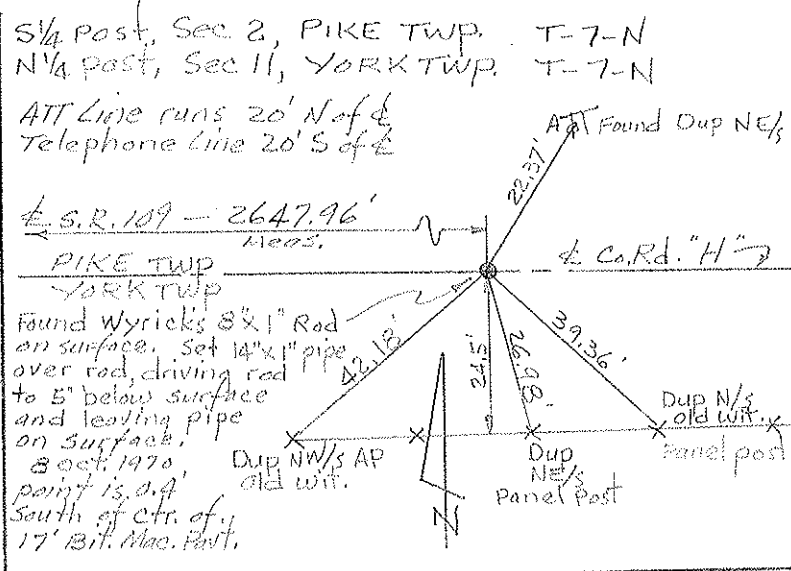 S1/4 Post, Sec 2, PIKE TWP. T-7-N
N1/4 post, Sec 11, YORK TWP. T-7-N
ATT Line runs 20' N of ℄
Telephone line 20' S of ℄
ATT Found Dup NE/s
22.37'
℄ S.R. 109 — 2647.96'
Meas.
PIKE TWP
YORK TWP
℄ Co. Rd. "H"
Found Wyricks 8"x1" Rod
on surface. Set 14"x1" pipe
over rod, driving rod
to 5" below surface
and leaving pipe
on surface.
8 Oct. 1970,
point is 0.4'
South of Ctr. of
17' Bit. Mac. Pavt.
42.18'
24.5'
26.98'
39.36'
Dup NW/s AP
old wit.
Dup
NE/s
Panel Post
Dup N/s
old wit.
Panel post
N